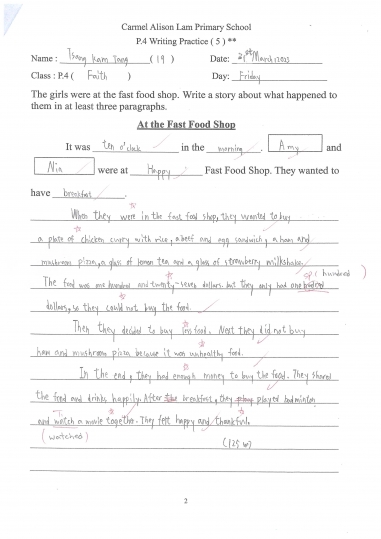 Carmel Alison Lam Primary School
P.4 Writing Practice ( 5 ) **
Name : Tsang Kam Tang ( 19 ) Date: 21st March 2025
Class : P.4 ( Faith ) Day: Friday
The girls were at the fast food shop. Write a story about what happened to
them in at least three paragraphs.
At the Fast Food Shop
It was ten o'clock in the morning . Amy and
Nin were at Happy Fast Food Shop. They wanted to
have breakfast .
When they were in the fast food shop, they wanted to buy
a plate of chicken curry with rice, a beef and egg sandwich, a ham and
mushroom pizza, a glass of lemon tea and a glass of strawberry milkshake.
sp ( hundred )
The food was one hundred and twenty-seven dollars. but they only had one
dollars, so they could not buy the food.
Then they decided to buy less food. Next they did not buy
ham and mushroom pizza because it was unhealthy food.
In the end, they had enough money to buy the food. They shared
the food and drinks happily. After the breakfast, they play played badminton
and watch a movie togethe. They felt happy and thankful.
(watched)
(125 w)
2